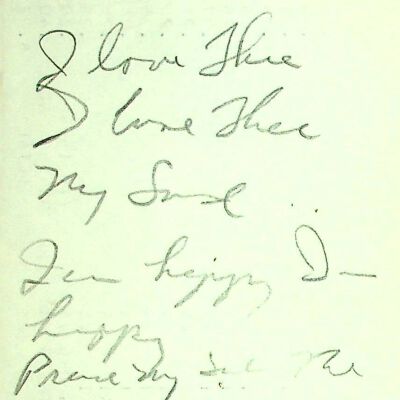 I love Thee
I love Thee
My Soul
I'm happy I'm
happy
Praise My The